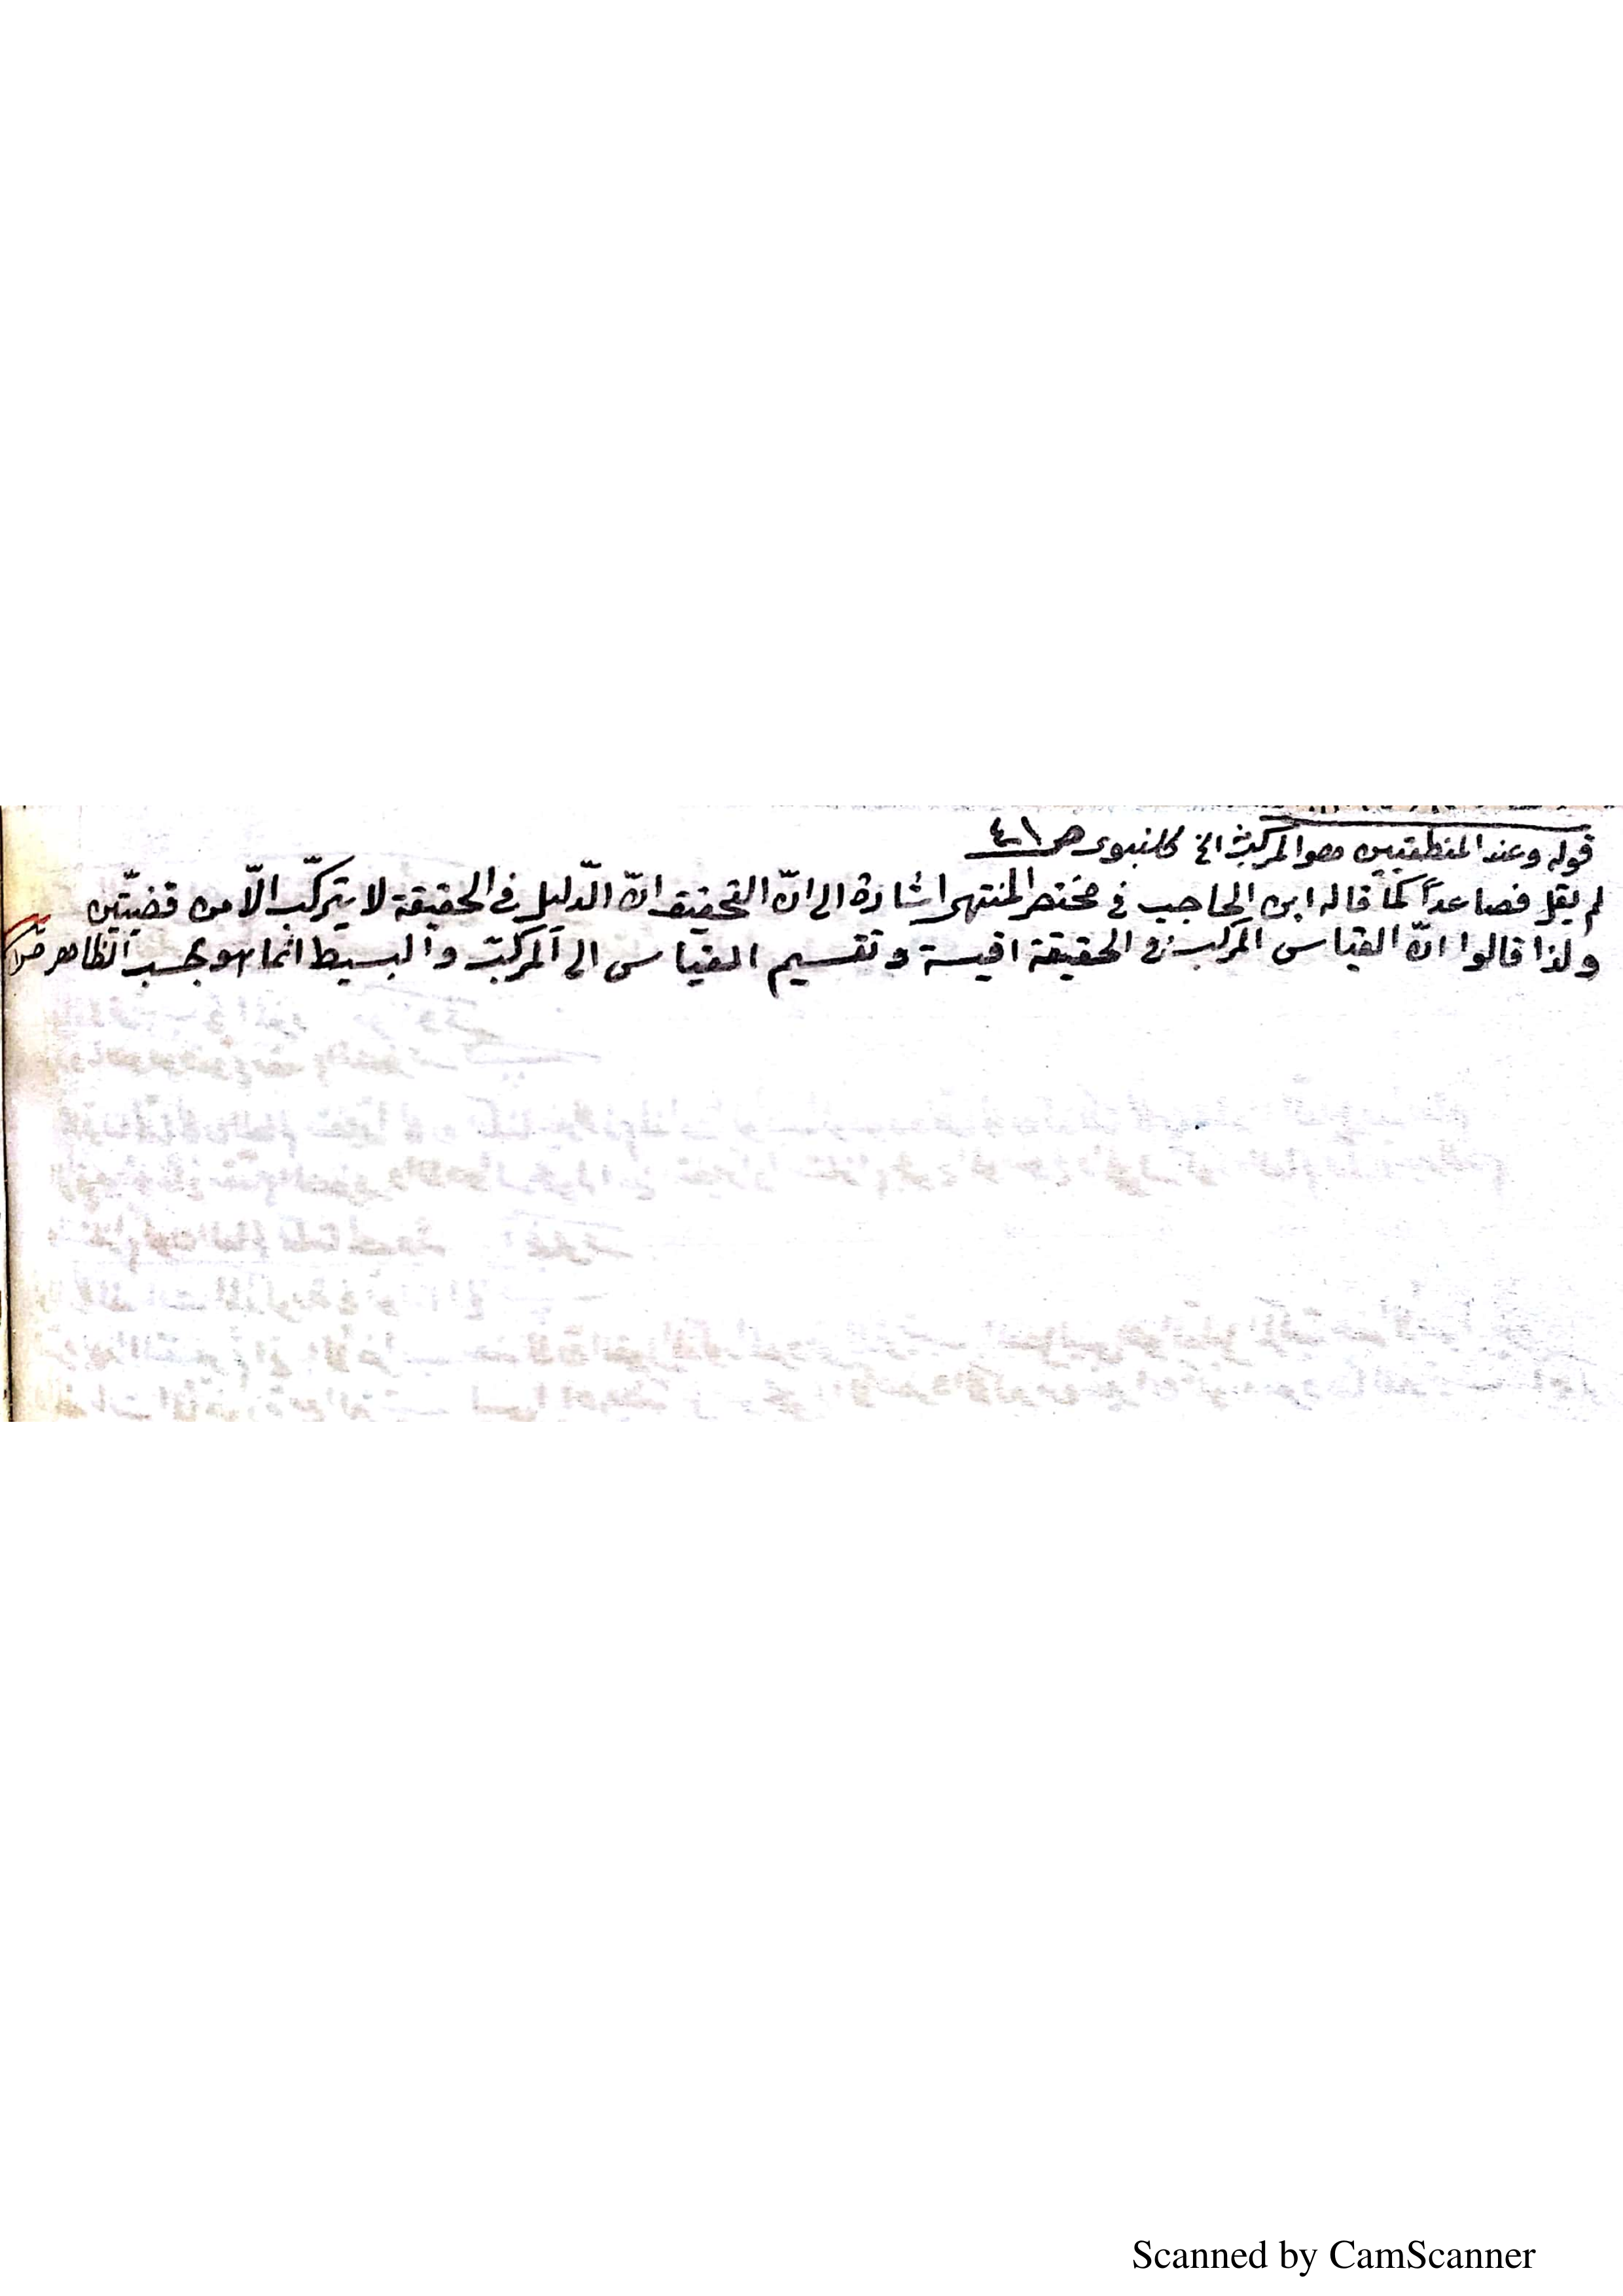 قوله وعند المنطقيين هو المركب الخ كلنبوى ص ٤٠١
لم يقل فصاعداً كما قاله ابن الحاجب فى مختصر المنتهى اشارة الى انّ التحقيق انّ الدّليل فى الحقيقة لا يتركّب الّا من قضيّتين
ولذا قالوا انّ القياس المركب فى الحقيقة اقيسة وتقسيم القياس الى المركب والبسيط انّما هو بحسب الظاهر
Scanned by CamScanner